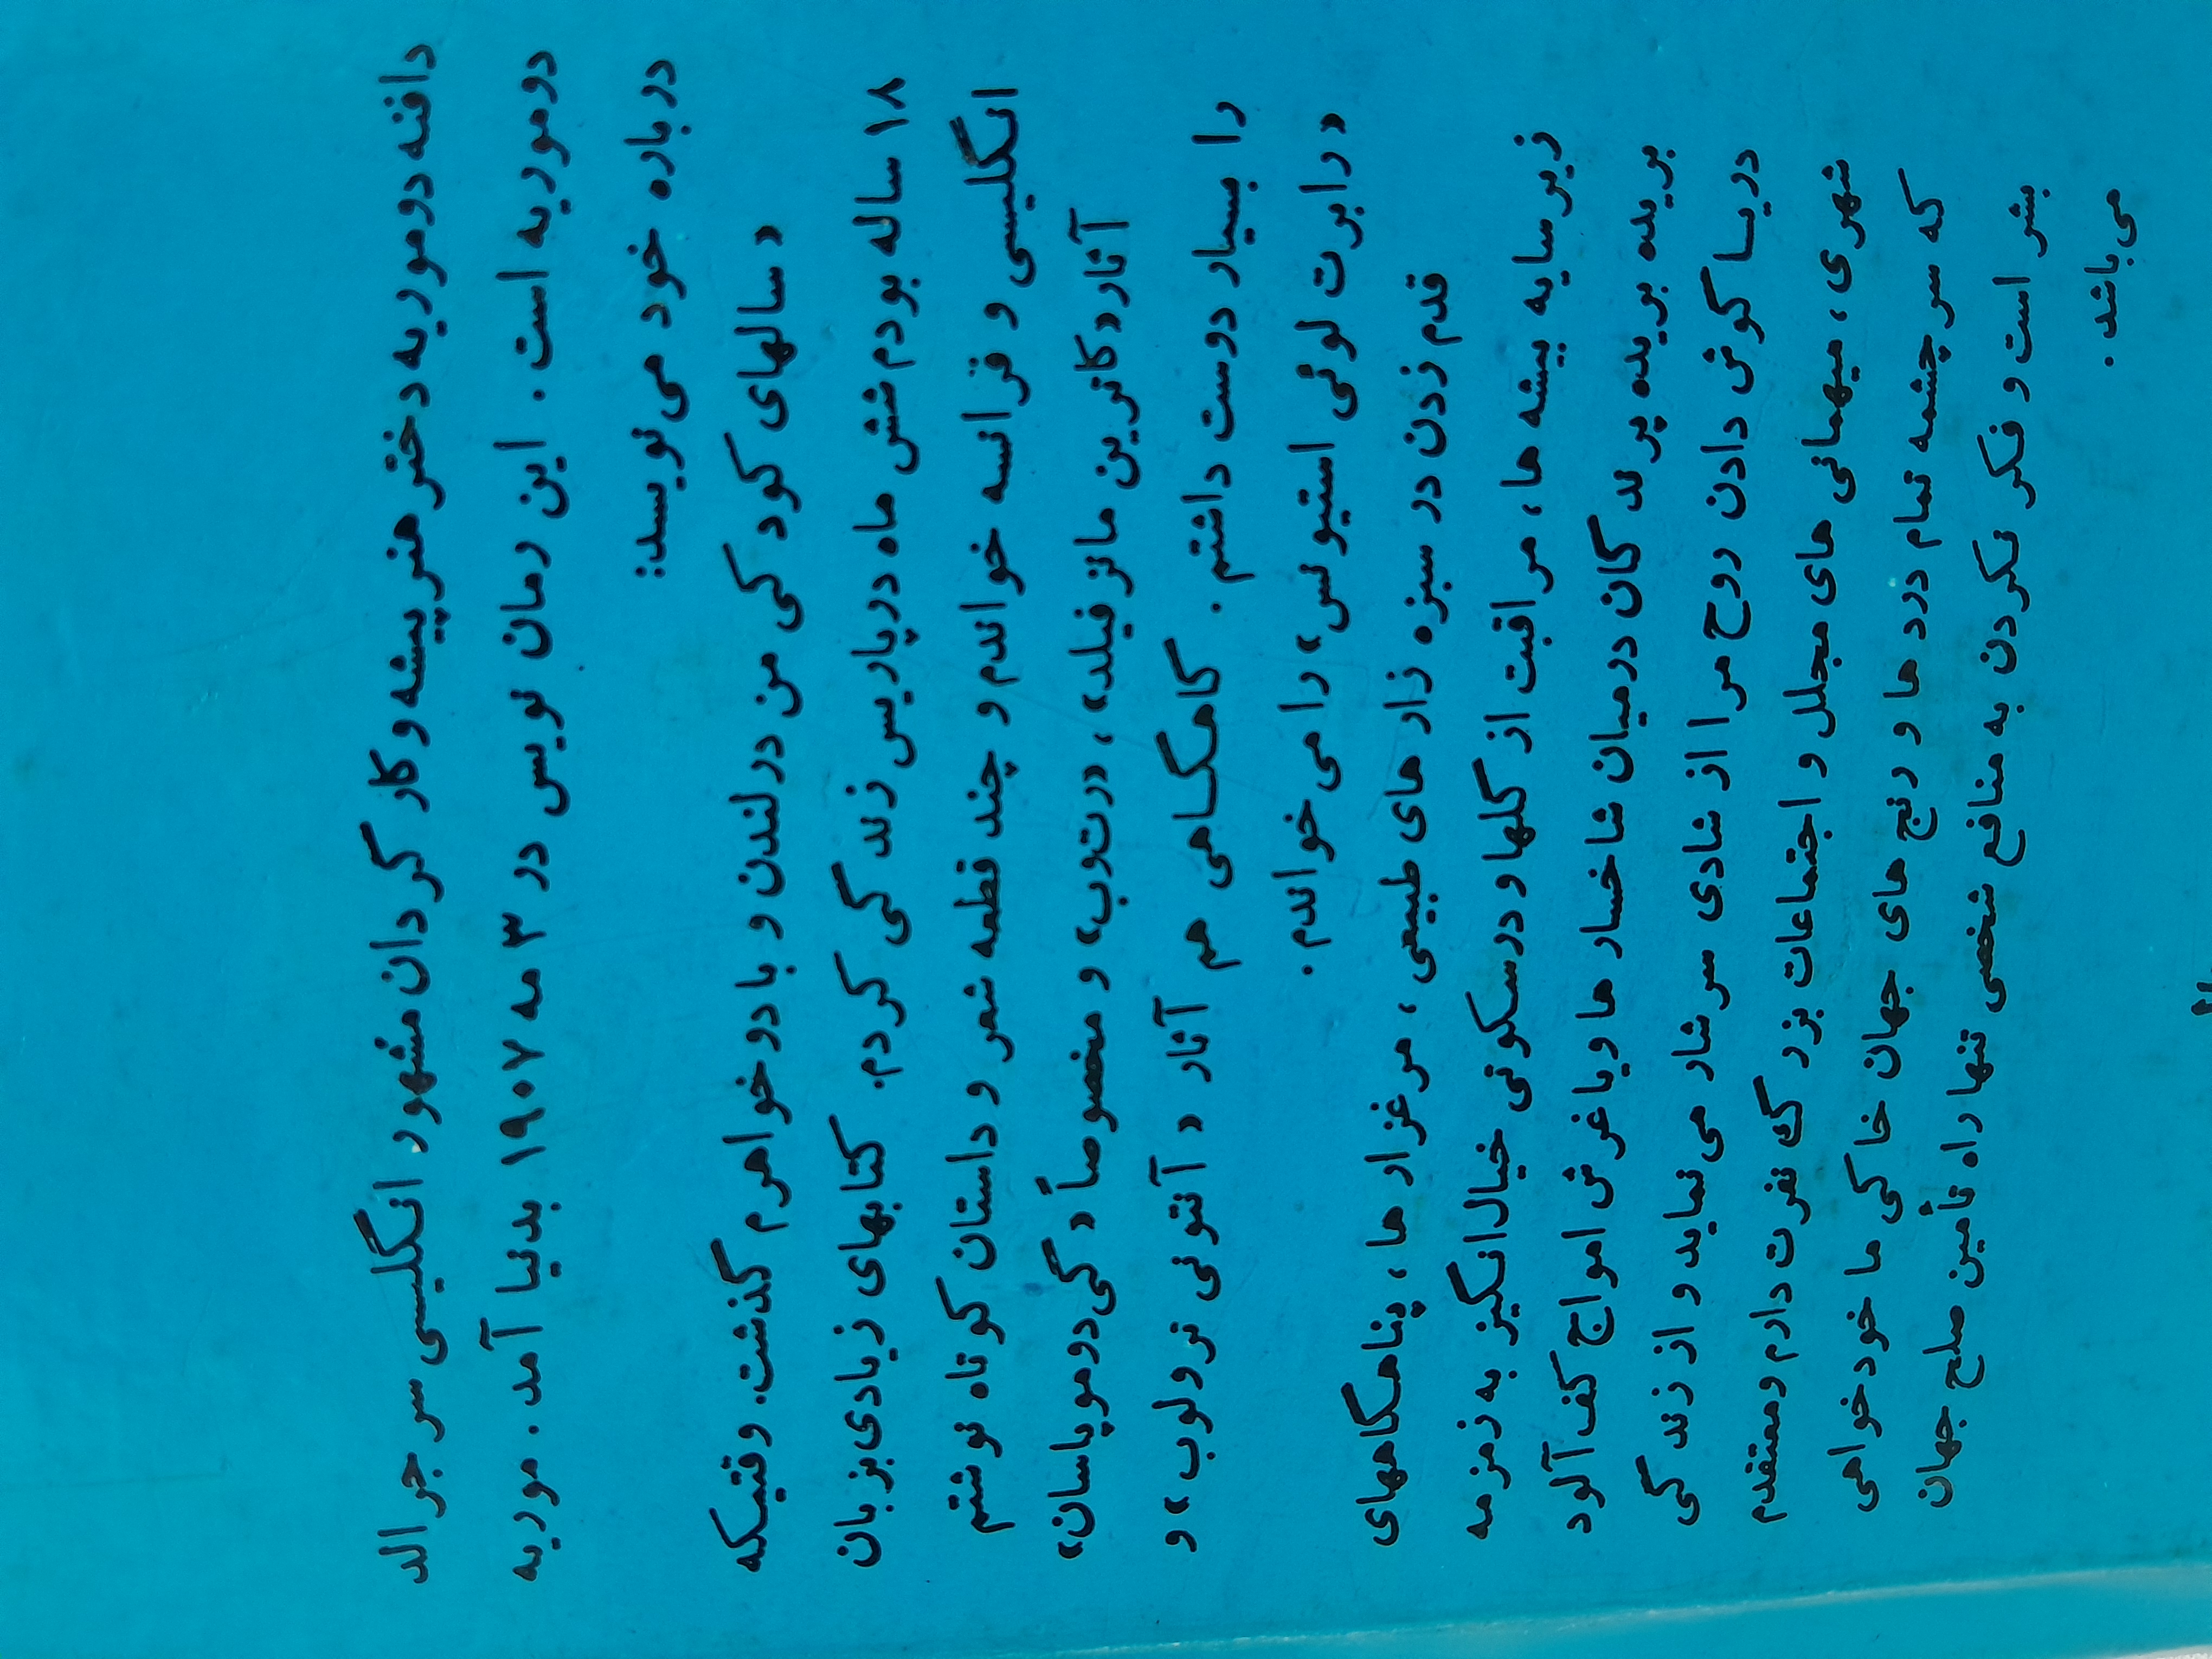 دافنه دوموریه دختر هنرپیشه و کارگردان مشهور انگلیسی سر جرالد
دوموریه است . این رمان نویس در ۳ مه ۱۹۰۷ بدنیا آمد . موریه
درباره خود می‌نویسد:
« سالهای کودکی من در لندن و با دو خواهرم گذشت. وقتیکه
۱۸ ساله بودم شش ماه در پاریس زندگی کردم. کتابهای زیادی بزبان
انگلیسی و فرانسه خواندم و چند قطعه شعر و داستان کوتاه نوشتم
آثار «کاترین مانزفیلد» ، «رت‌وب» و مخصوصاً «گی‌دوموپاسان»
را بسیار دوست داشتم . گاهگاهی هم آثار « آنتونی ترولوب » و
« رابرت لوئی استیونس » را می خواندم .
قدم زدن در سبزه زارهای طبیعی ، مرغزارها ، پناهگاههای
زیر سایه بیشه ها ، مراقبت از گلها و در سکوتی خیال‌انگیز به زمزمه
بریده بریده پرندگان درمیان شاخسارها و یا غرش امواج کف‌آلود
دریا گوش دادن روح مرا از شادی سرشار می نماید و از زندگی
شهری ، میهمانی های مجلل و اجتماعات بزرگ نفرت دارم و معتقدم
که سرچشمه تمام دردها و رنج های جهان خاکی ما خودخواهی
بشر است و فکر نکردن به منافع شخصی تنها راه تأمین صلح جهان
می‌باشد .